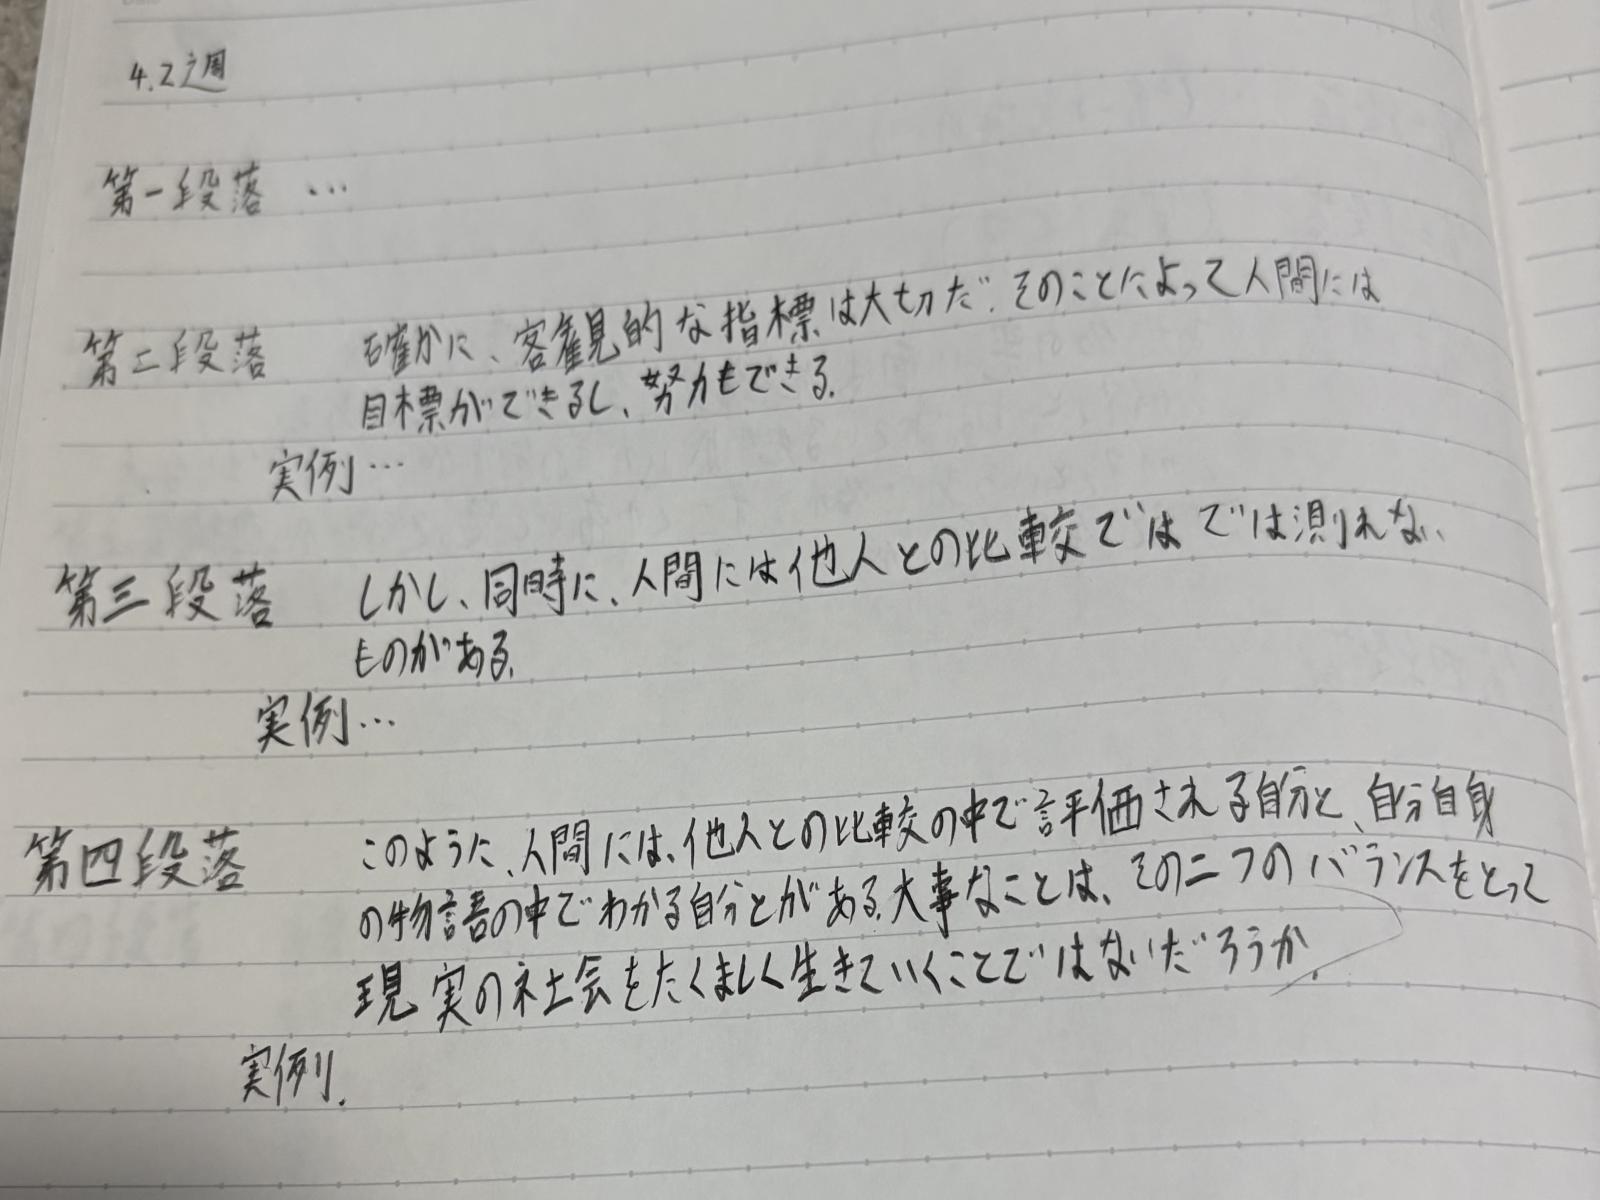 4.2週
第一段落 …
第二段落 確かに、客観的な指標は大切だ.そのことによって人間には
目標ができるし、努力もできる.
実例…
第三段落 しかし、同時に、人間には他人との比較ではでは測れない
ものがある.
実例…
第四段落 このように、人間には、他人との比較の中で評価される自分と、自分自身
の物語の中でわかる自分とがある.大事なことは、その二つのバランスをとって
現実の社会をたくましく生きていくことではないだろうか.
実例.